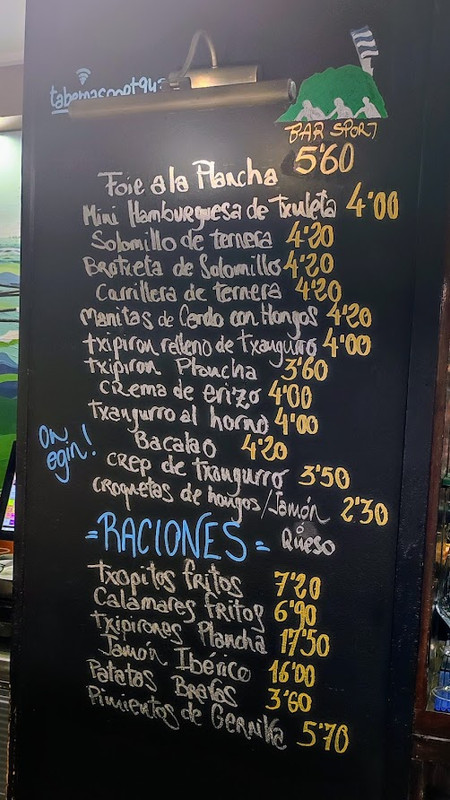 BAR SPORT
Foie a la Plancha 5'60
Mini Hamburguesa de Txuleta 4'00
Solomillo de ternera 4'20
Brotxeta de Solomillo 4'20
Carrillera de ternera 4'20
Manitas de Cerdo con Hongos 4'20
txipiron relleno de txangurro 4'00
txipiron Plancha 3'60
crema de erizo 4'00
Txangurro al horno 4'00
Bacalao 4'20
crep de txangurro 3'50
croquetas de hongos/Jamón 2'30
Queso
On
egin!
=RACIONES=
Txopitos fritos 7'20
Calamares fritos 6'90
Txipirones Plancha 17'50
Jamón Ibérico 16'00
Patatas Bravas 3'60
Pimientos de Gernika 5'70